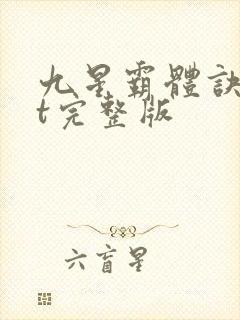 九星霸體訣
t完整版
六盲星